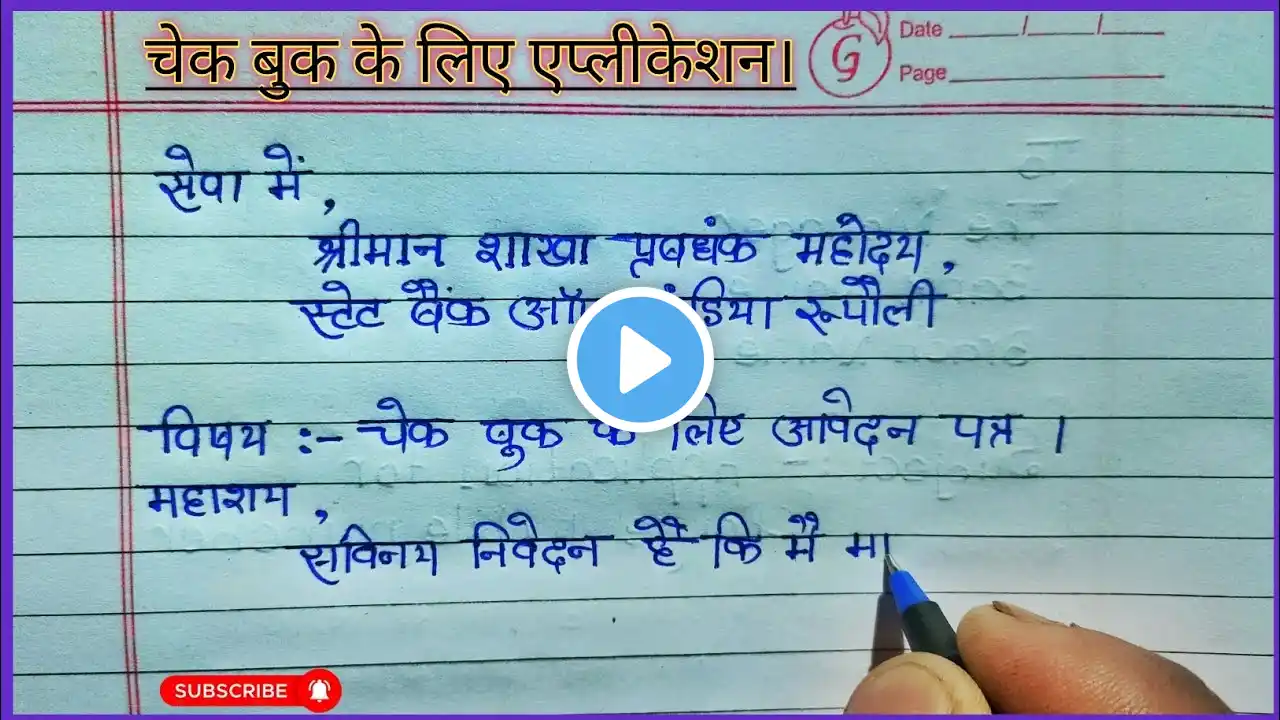 चेक बुक के लिए एप्लीकेशन।
G
Date
Page
सेवा में,
श्रीमान शाखा प्रबधंक महोदय,
स्टेट बैंक ऑफ इंडिया रूपौली
विषय :- चेक बुक के लिए आवेदन पत्र ।
महाशय,
सविनय निवेदन है कि मै मा
SUBSCRIBE